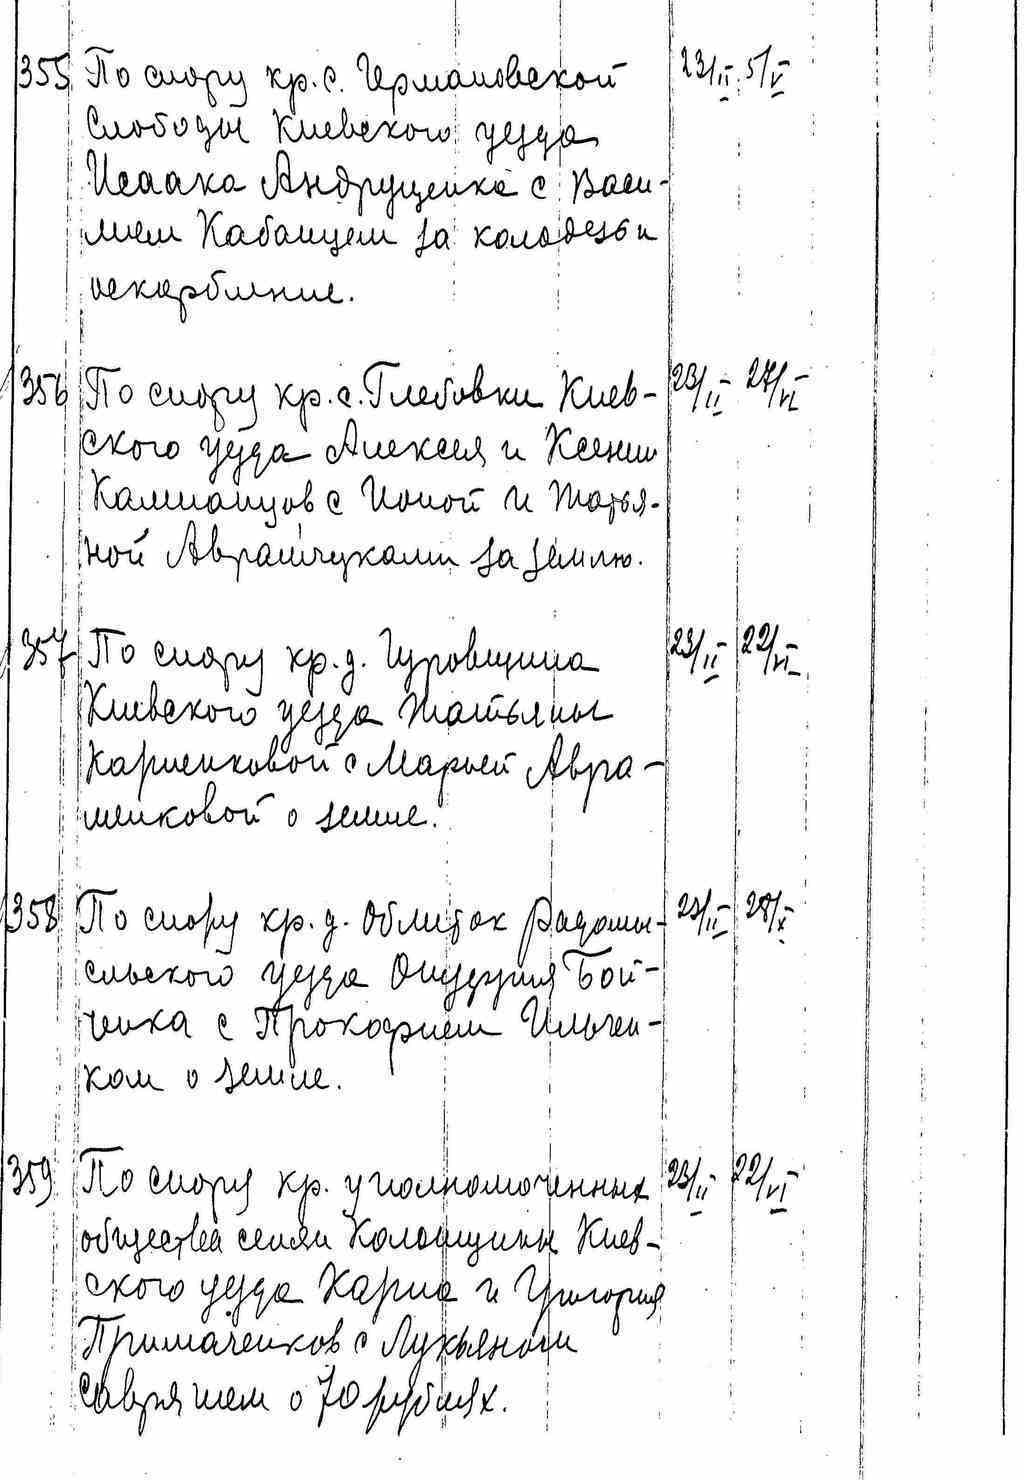 355 По спору кр. с. Германовской 23/II 5/V
Слободы Киевского уезда
Исаака Андрущенка с Васи-
лием Кабанцем за колодезь и
оскорбление.
356 По спору кр. с. Глебовки Киев- 23/II 27/VI
ского уезда Алексея и Ксении
Калианцов с Ионой и Татья-
ной Аврамчуками за землю.
357 По спору кр. д. Гуровщина 23/II 22/VI
Киевского уезда Татьяны
Карпенковой с Марьей Авра-
менковой о земле.
358 По спору кр. д. Облиток Радомы- 23/II 28/X
сльского уезда Онуфрия Бой-
ченка с Прокофием Ильчен-
ком о земле.
359 По спору кр. уполномоченных 23/II 22/VI
общества селян Колонщины Киев-
ского уезда Карпа и Григория
Примаченков с Лукьяном
о 70 рублях.